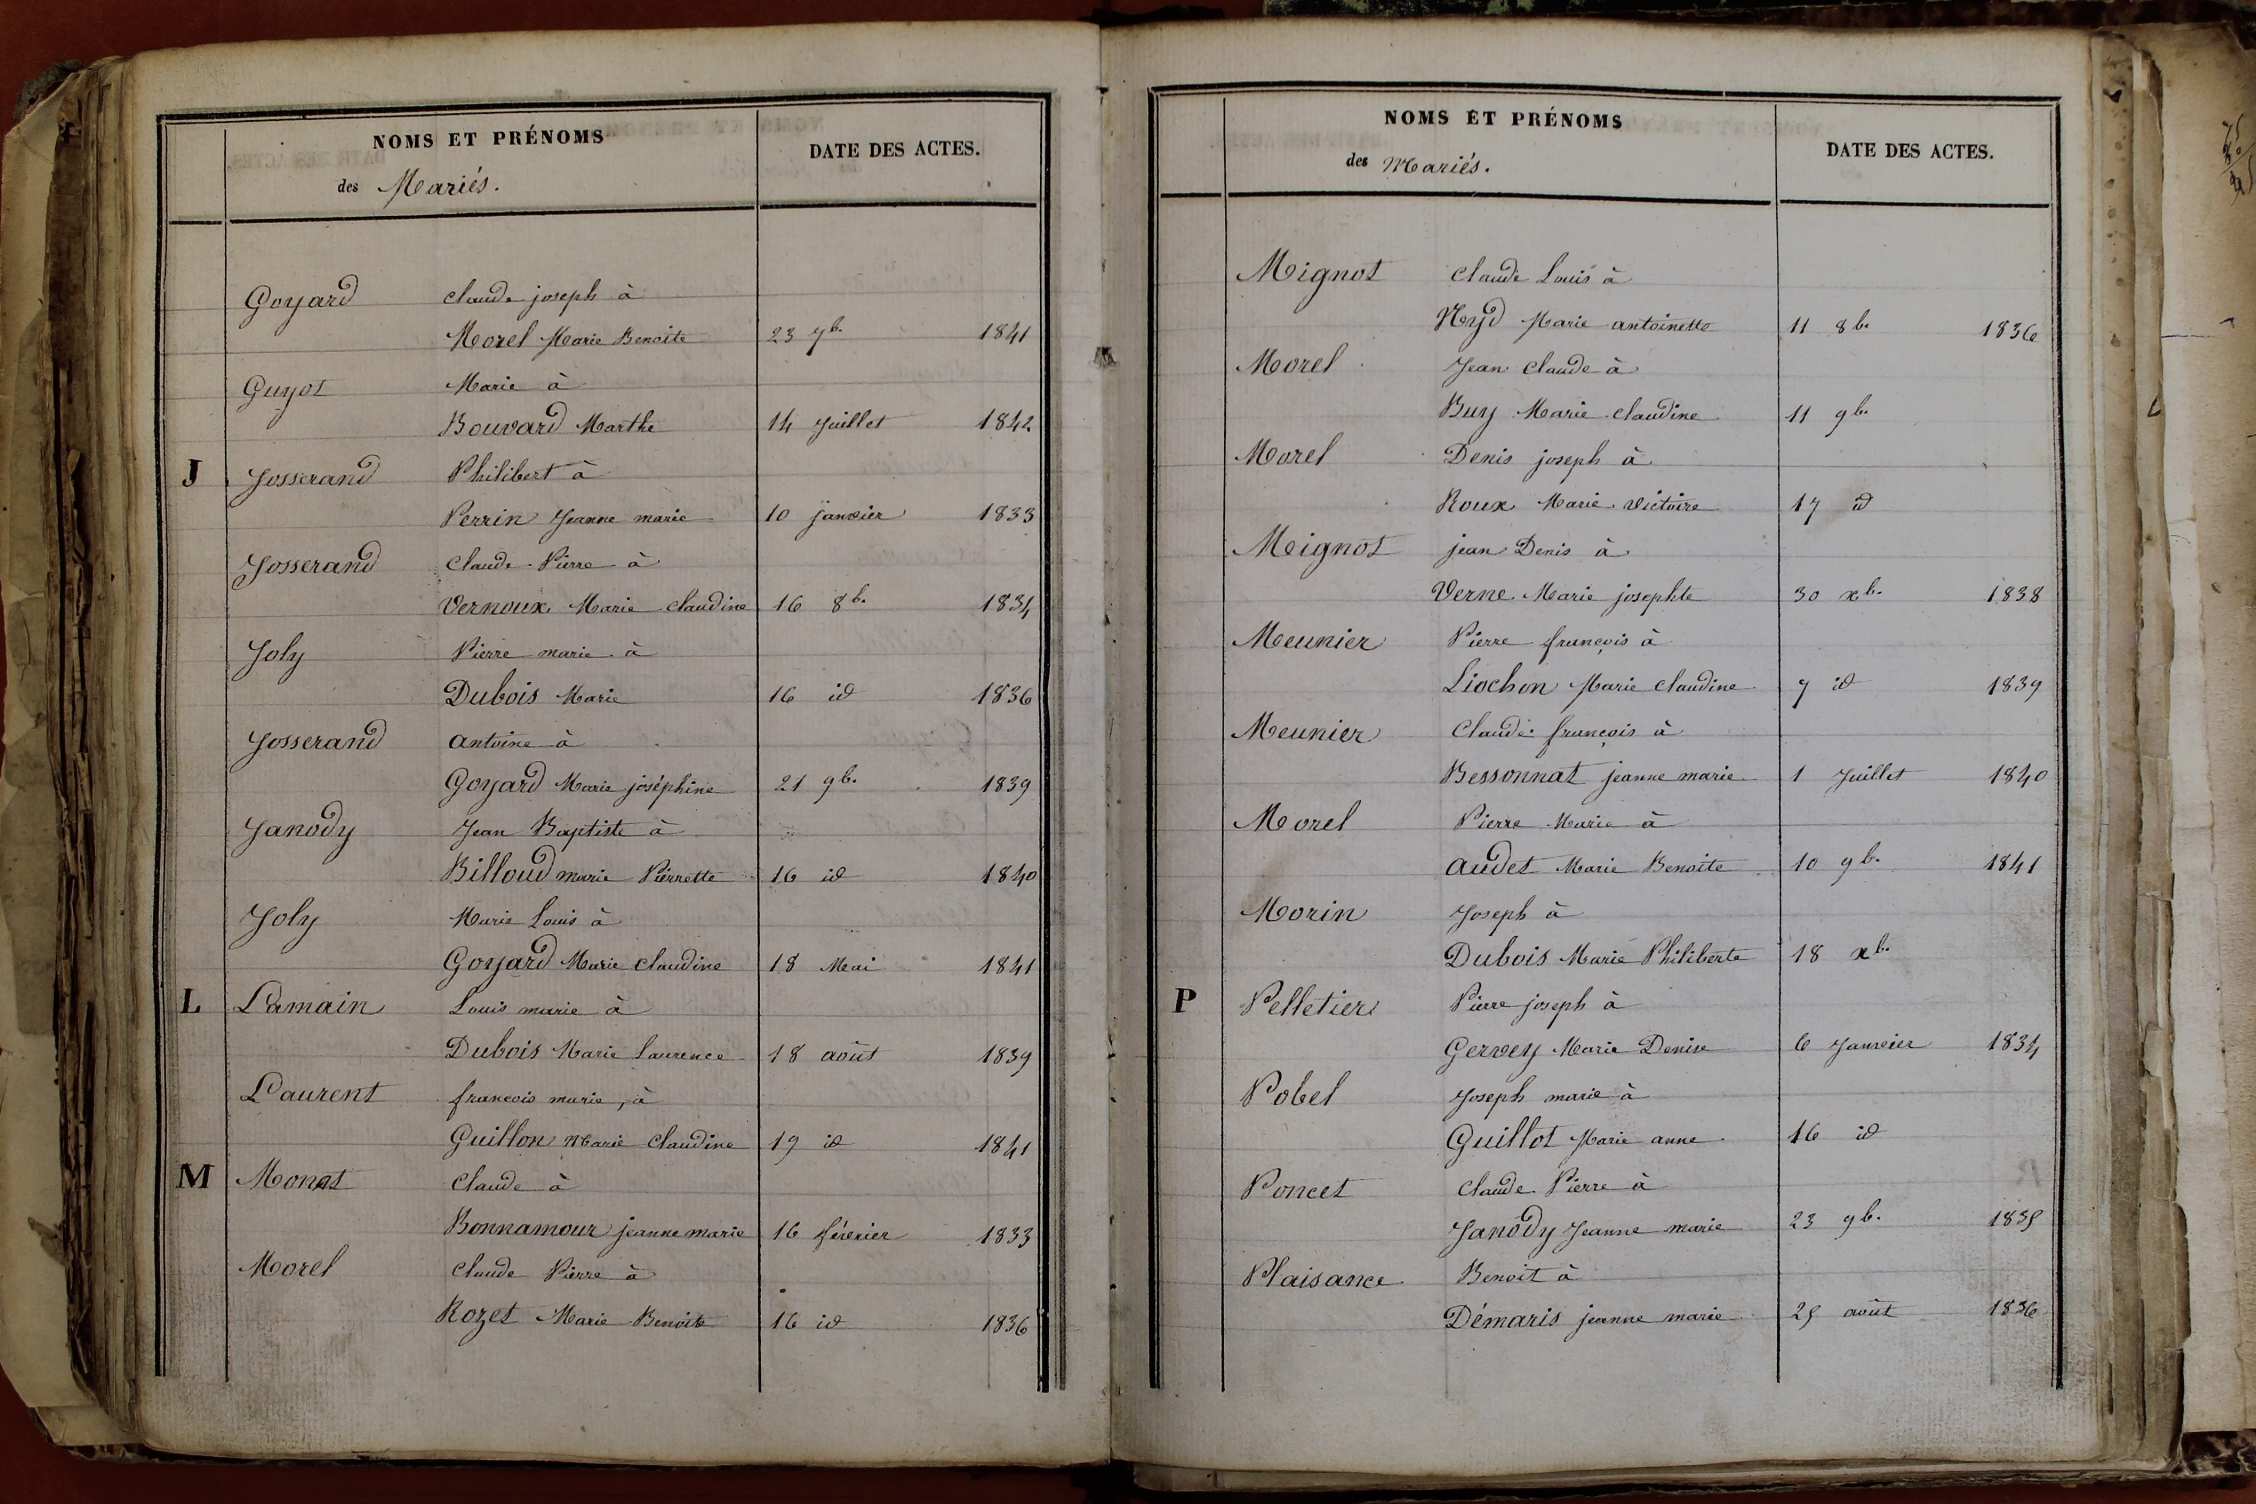 NOMS ET PRÉNOMS
des Mariés.
DATE DES ACTES.
Goyard Claude joseph à
Morel Marie Benoite 23 7b. 1841
Guyot Marie à
Bouvard Marthe 14 Juillet 1842
J Josserand Philibert à
Perrin Jeanne marie 10 janvier 1833
Josserand Claude Pierre à
Vernoux Marie Claudine 16 8b. 1834
Joly Pierre marie à
Dubois Marie 16 id 1836
Josserand antoine à
Goyard Marie joséphine 21 9b. 1839
Janody Jean Baptiste à
Billoud marie Pierrette 16 id 1840
Joly Marie Louis à
Goyard Marie Claudine 18 Mai 1841
L Lamain Louis marie à
Dubois Marie Laurence 18 août 1839
Laurent françois marie, à
Guillon Marie Claudine 19 id 1841
M Monat Claude à
Bonnamour jeanne marie 16 février 1833
Morel Claude Pierre à
Rozet Marie Benoite 16 id 1836
NOMS ET PRÉNOMS
des Mariés.
DATE DES ACTES.
Mignot Claude Louis à
Nyd Marie antoinette 11 8b. 1836
Morel Jean Claude à
Buy Marie Claudine 11 9b.
Morel Denis joseph à
Roux Marie Victoire 17 id
Mignot jean Denis à
Verne Marie josephte 30 xb. 1838
Meunier Pierre françois à
Liochon Marie Claudine 7 id 1839
Meunier Claude françois à
Bessonnat jeanne marie 1 Juillet 1840
Morel Pierre Marie à
Audet Marie Benoite 10 9b. 1841
Morin Joseph à
Dubois Marie Philiberte 18 xb.
P Pelletier Pierre joseph à
Gervey Marie Denise 6 Janvier 1834
Pobel Joseph marie à
Guillot Marie anne 16 id
Poncet Claude Pierre à
Janody Jeanne marie 23 9b. 1835
Plaisance Benoit à
Démaris jeanne marie 25 août 1836